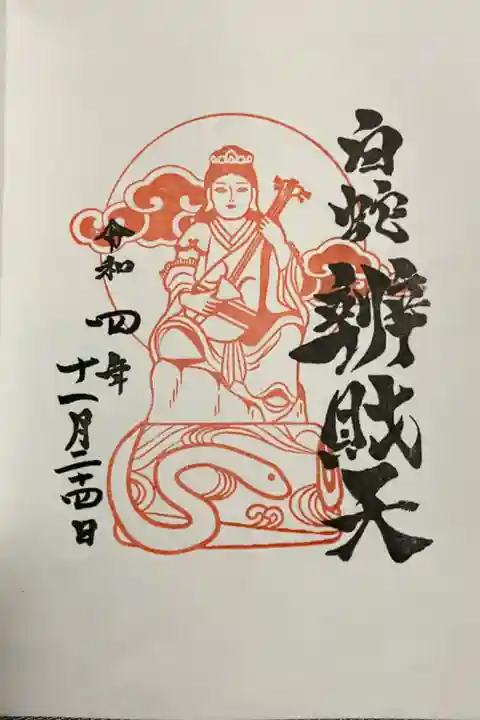 白蛇辨財天
令和四年
十一月二十四日